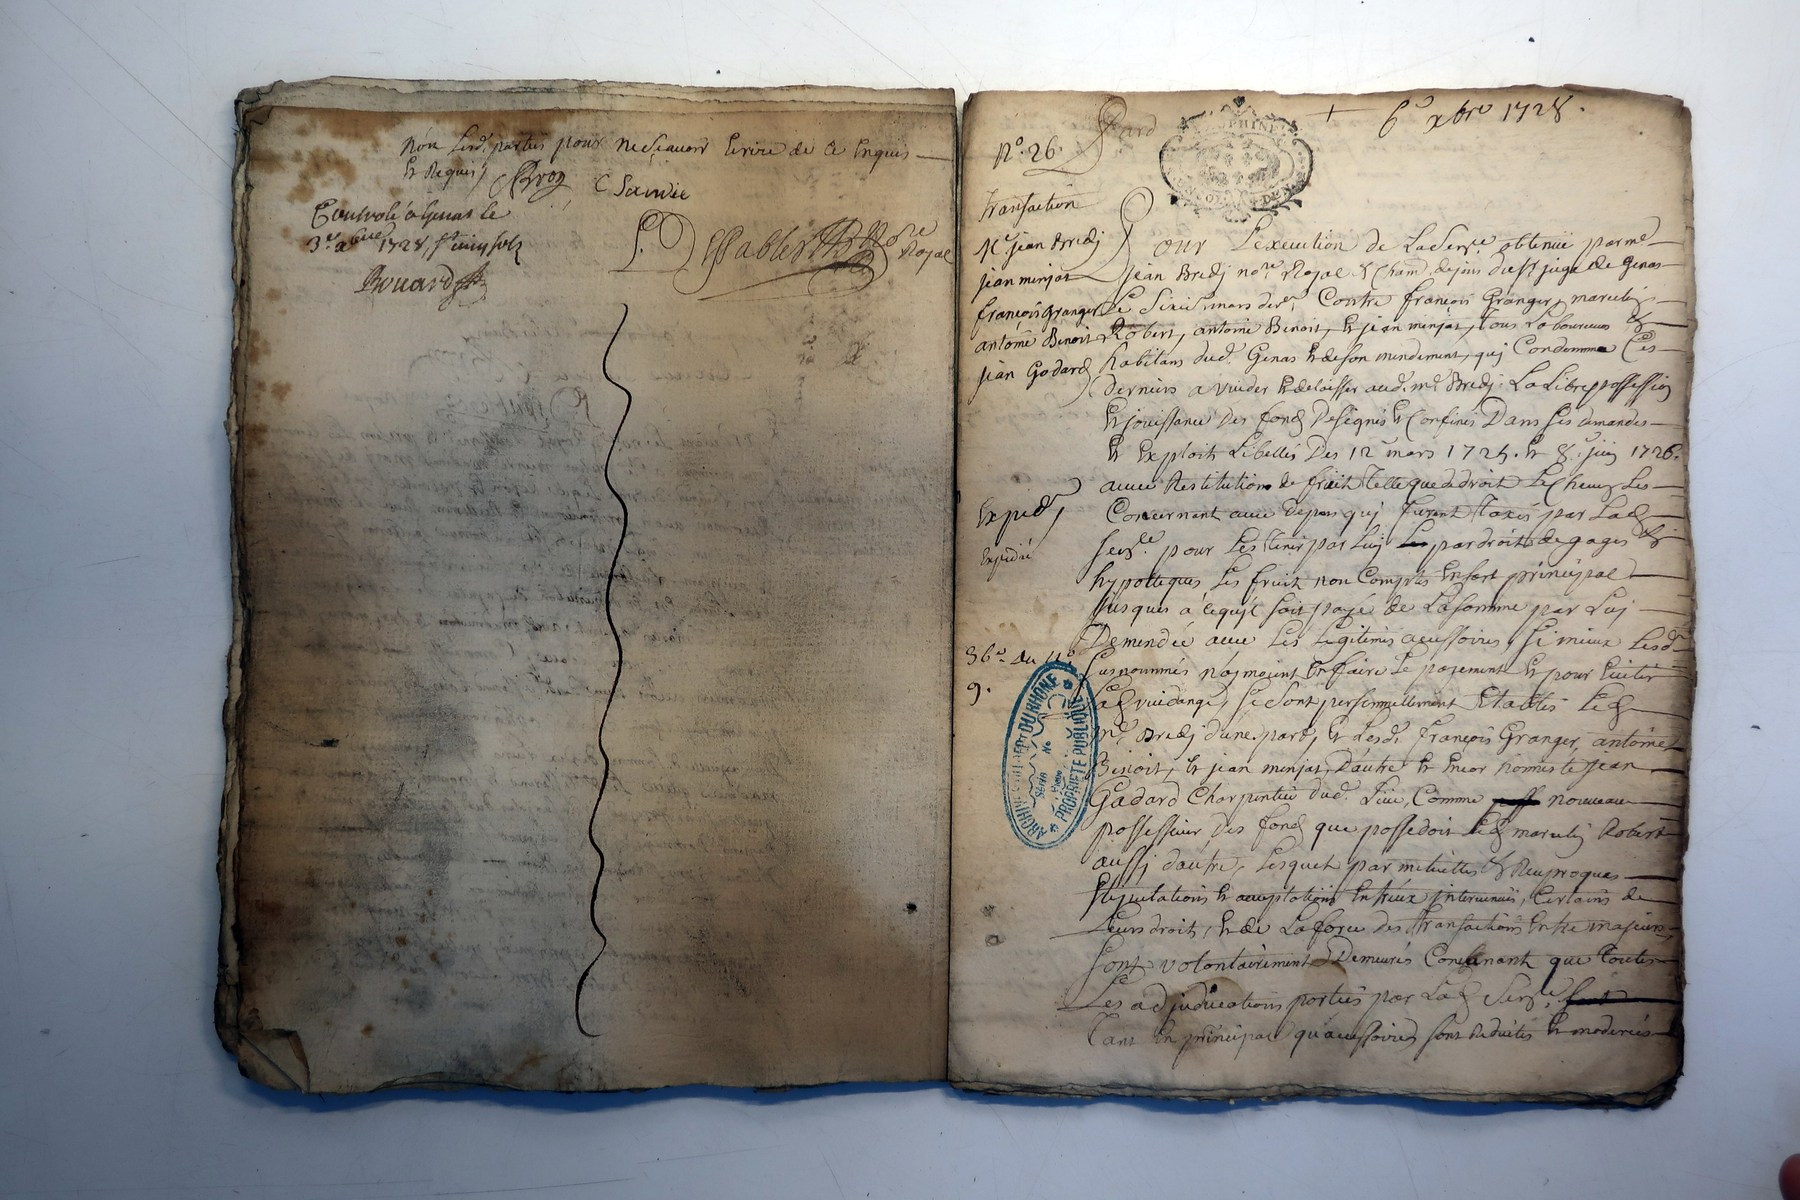 non lesd. parties pour ne scavoir Ecrire de ce Enquis
Et Requis
Controlé a Genas le
3e. xbre 1728
Bouard
Royal
+ 6e xbre 1728.
No. 26.
Transaction
Me. jean Bredj
jean minjat
françois Granger
antoine Benoit
jean Godard
Pour L'execution de La Sence. obtenüe par me
jean Bredj nore. Royal & Cham. dejuis dud. juge de Genas
Le Sixie. mars der. Contre françois Granger, marcelin
Robert, antoine Benoit, Et jean minjat, Tous Laboureurs &
habitans dud. Genas Et de son mendement, quj Condemne Ces
derniers a vuider Et delaisser aud. me Bredj La Libre possession
Et jouissance Des fond Designés Et Confinés Dans Ses demandes
Et Exploits Libellés Des 12e mars 1725. Et 8e. juin 1726.
avec Restitution de fruit Telle que de droit Le Cheun Les
Concernant avec depens quj furent Taxés par Lad
Sence. pour Les Tenir par Luj par droit de gages &
hypotteques Les fruit non Compts En Sort principal
jusques à ce quil Soit payé de La Somme par Luj
Demendée avec Les Legitimes accessoires, Si mieux Lesd.
Susnommés n'aymoint En faire Le payement Et pour Eviter
Lad vuidange, Se Sont personnellement Etablis Led
me. Bredj d'une part, Et Lesd. françois Granger, antoine
Benoit, Et jean minjat, D'autre Et Encor honneste jean
Gadard Charpentier dud. Lieu, Comme nouveau
possesseur Des fond que possedoit Led marcelin Robert
aussi d'autre, Lesquels par mutuelles & Reciproques
Stipulations Et acceptations Entreux intervenües, Certains de
Leurs droits, Et de La force des Transactions Entre majeurs,
Sont volontairement Demeurés Convenant que Toutes
Les adjudications portées par Lad Sence.
Tant En principal qu'accessoires Sont Reduites Et moderées
Exped.
Expedié
36e. du 11e.
9.
ARCHIVES DU DEPT DU RHONE
Série No
PROPRIÉTÉ PUBLIQUE